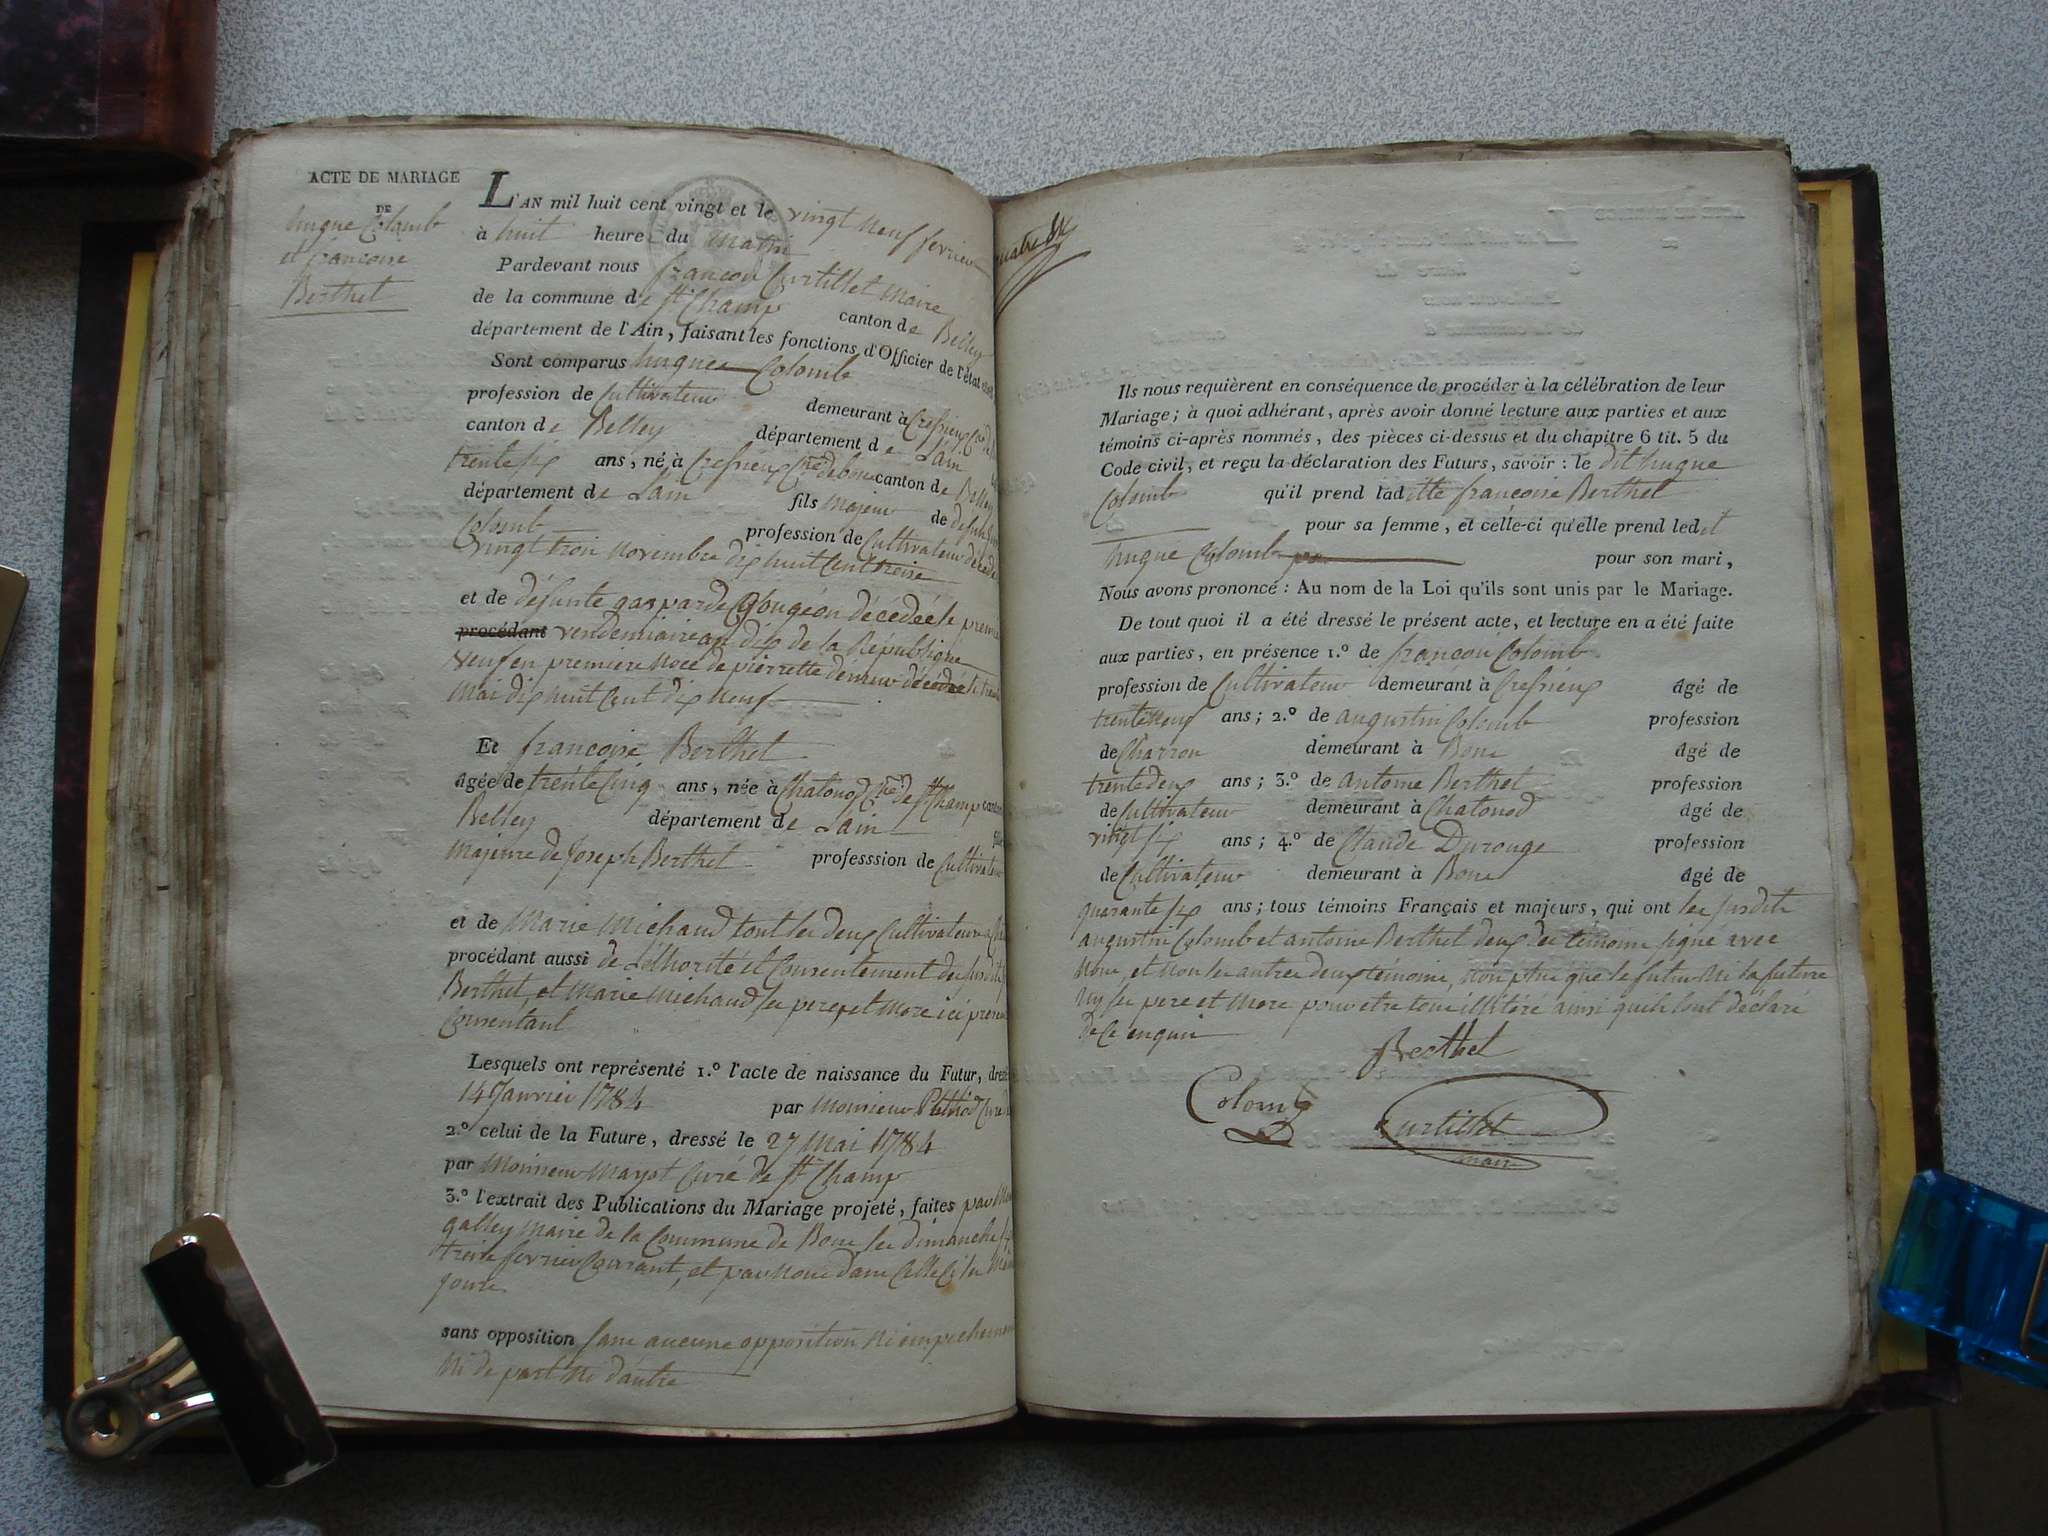 ACTE DE MARIAGE
DE
hugue Colomb
et françoise
Berthet
L'AN mil huit cent vingt et le vingt neuf fevrier
à huit heure du matin
Pardevant nous françois Curtillet Maire
de la commune de St Champ canton de Belley
département de l'Ain, faisant les fonctions d'Officier de l'état
Sont comparus hugues Colomb
profession de Cultivateur demeurant à Cressieux
canton de Belley département de Lain
trente six ans, né à Cressieux canton de Belley
département de Lain fils majeur de defunt
Colomb profession de Cultivateur décédé
vingt trois novembre dix huit Cent treise
et de défunte gasparde Gougeon décedée le premier
procédant vendemiaire an dix de la République
veuf en premiere noce de pierrette décédée le
Mai dix huit Cent dix neuf
Et françoise Berthet
âgée de trente Cinq ans, née à Chatonod Cne de St Champ canton
Belley département de Lain
majeure de Joseph Berthet professsion de Cultivateur
et de Marie Michaud tout les deux Cultivateurs
procédant aussi de Lethorité et Consentement des susdits
Berthet, et Marie Michaud ses pere et Mere ici présent
Consentant
Lesquels ont représenté 1.º l'acte de naissance du Futur,
14 Janvier 1784 par Monsieur
2.º celui de la Future, dressé le 27 Mai 1784
par Monsieur Mayot Curé de St Champ
3.º l'extrait des Publications du Mariage projeté, faites par
galley Maire de la Commune de Bons les dimanche
treise fevrier Courant, et par Nous dans Celle Ci les
jours
sans opposition sans aucune opposition Ni empechement
Ni de part Ni dautre
Ils nous requièrent en conséquence de procéder à la célébration de leur
Mariage; à quoi adhérant, après avoir donné lecture aux parties et aux
témoins ci-après nommés, des pièces ci-dessus et du chapitre 6 tit. 5 du
Code civil, et reçu la déclaration des Futurs, savoir: le dit hugue
Colomb qu'il prend laditte françoise Berthet
pour sa femme, et celle-ci qu'elle prend ledit
hugue Colomb pour son mari,
Nous avons prononcé: Au nom de la Loi qu'ils sont unis par le Mariage.
De tout quoi il a été dressé le présent acte, et lecture en a été faite
aux parties, en présence 1.º de françois Colomb
profession de Cultivateur demeurant à Cressieux âgé de
trente neuf ans; 2.º de augustin Colomb profession
de Charron demeurant à Bons âgé de
trente deux ans; 3.º de antoine Berthet profession
de Cultivateur demeurant à Chatonod âgé de
vingt six ans; 4.º de Claude Durouge profession
de Cultivateur demeurant à Bons âgé de
quarante six ans; tous témoins Français et majeurs, qui ont les susdits
augustin Colomb et antoine Berthet deux des témoins signé avec
Nous, et Non les autres deux témoins, Non plus que le futur Ni la future
Ny ses pere et Mere pour etre tous illitéré ainsi quils lont déclaré
de Ce enquis
Berthet
Colomb
Curtillet
maire